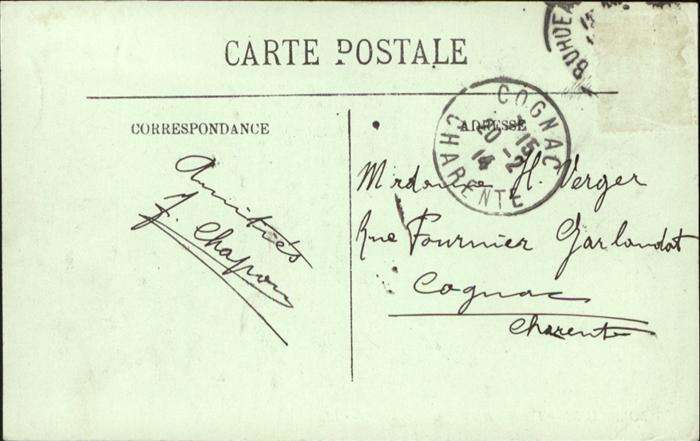 CARTE POSTALE
BORDEA
CORRESPONDANCE
ADRESSE
COGNAC
CHARENTE
15
20 -2
14
Amitiés
J. Chapon
H. Verger
Rue Fournier Garlandat
Cognac
Charente